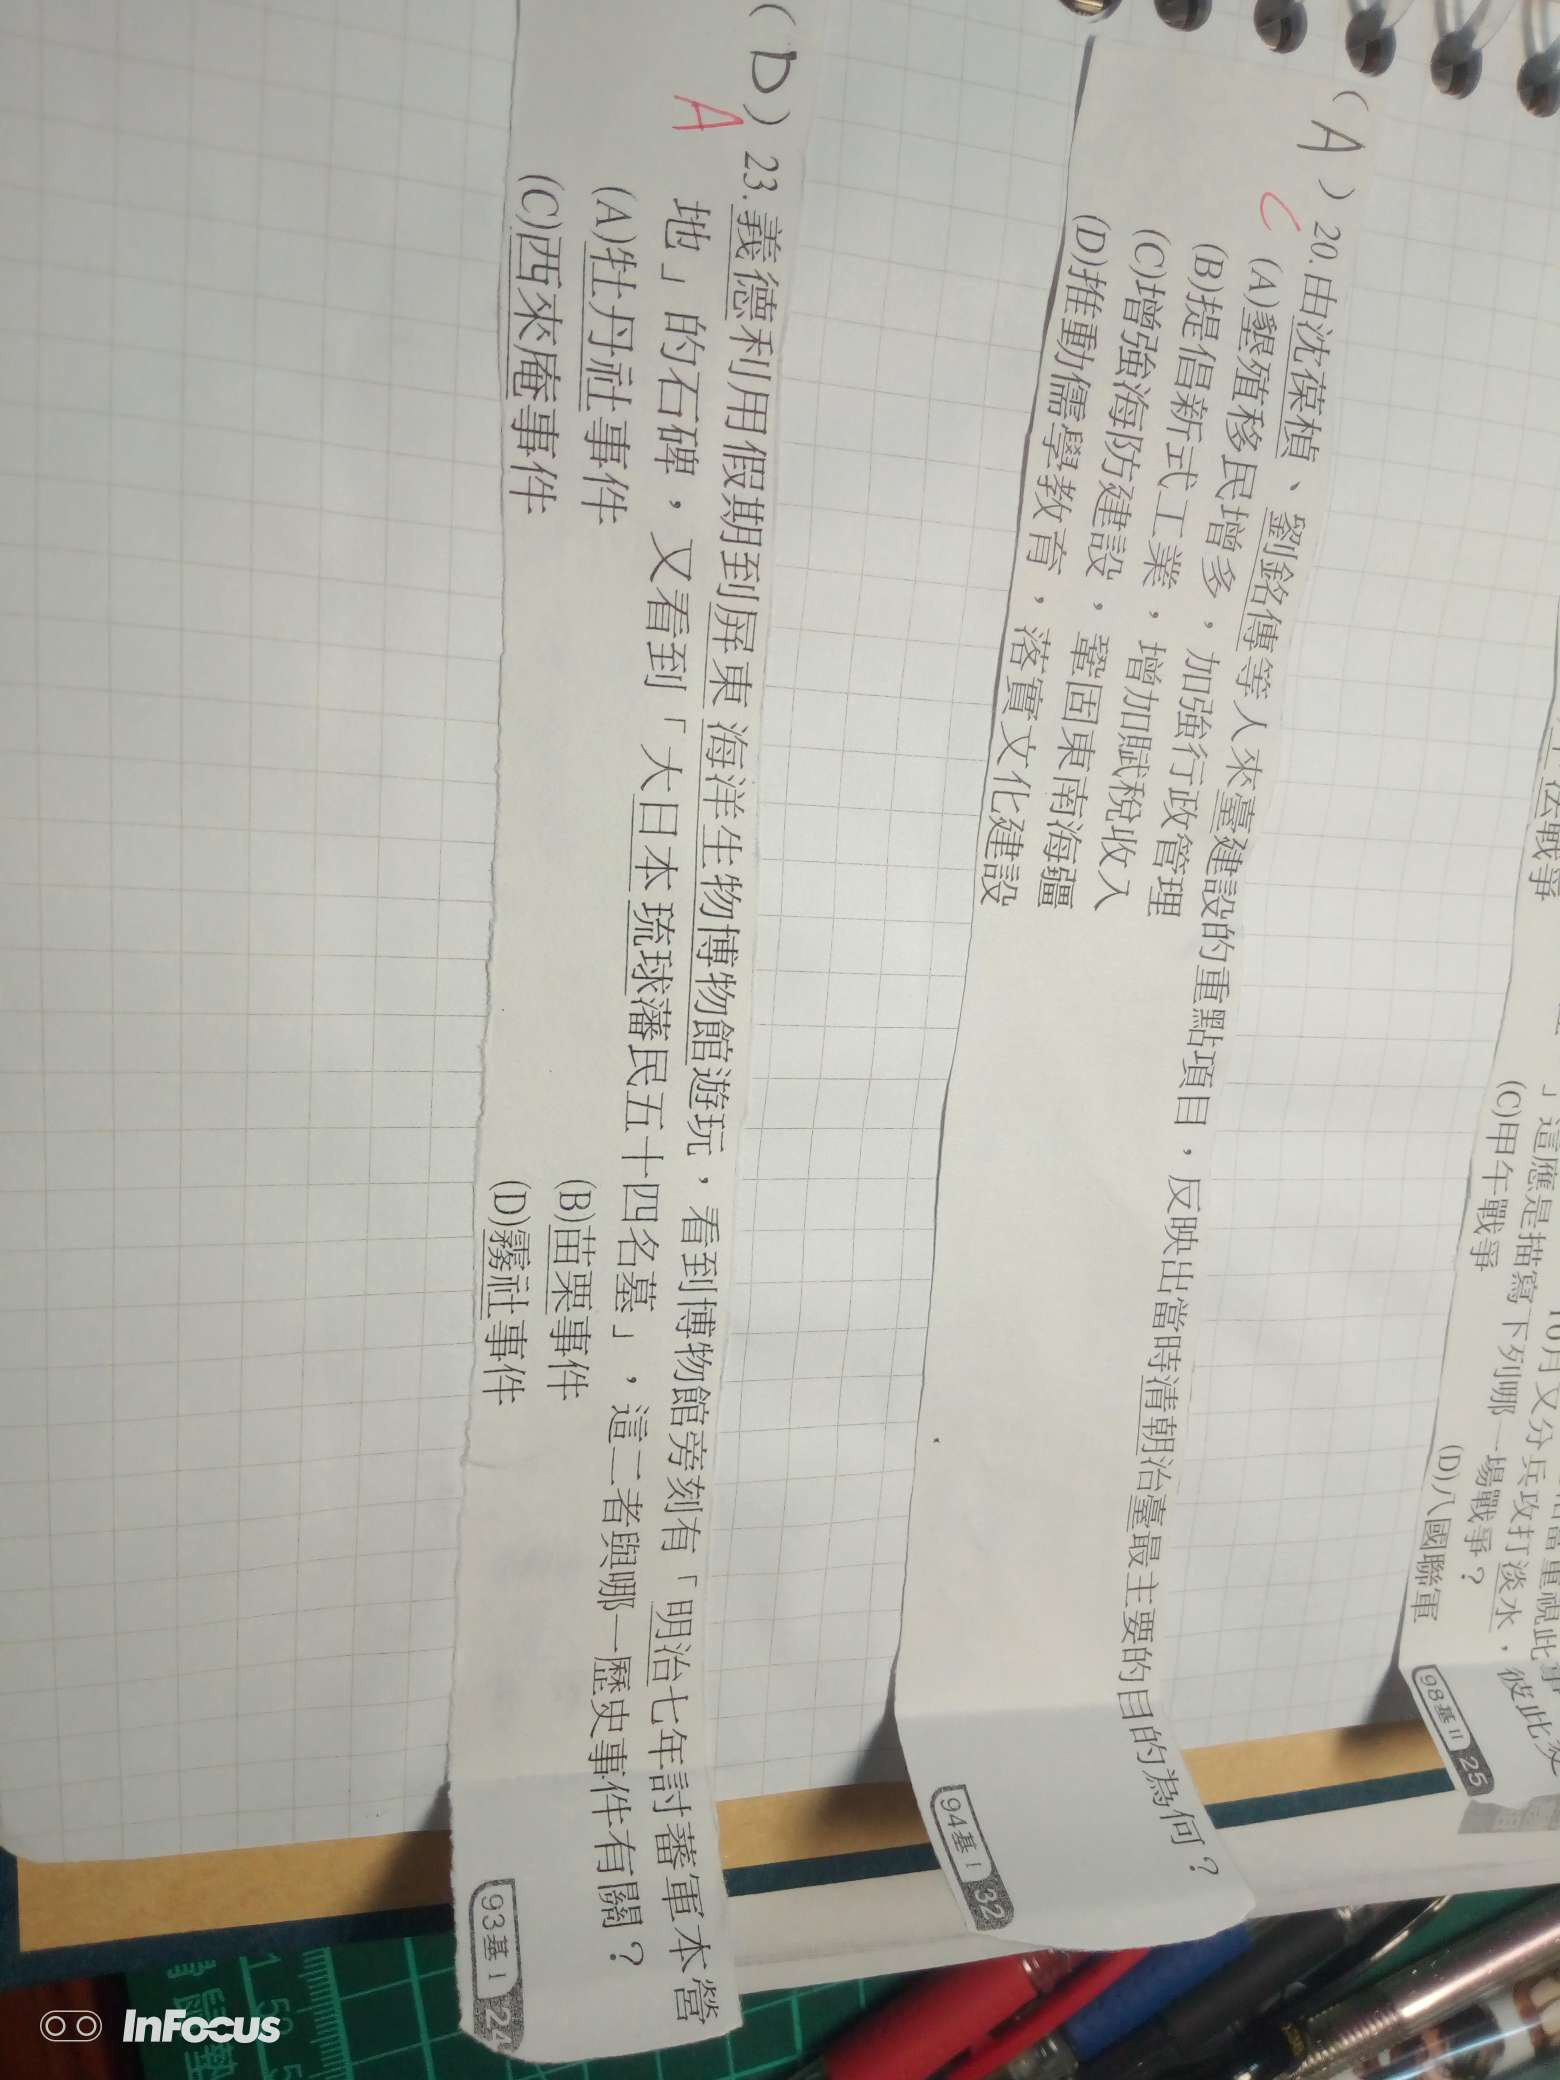 」這應是描寫下列哪一場戰爭？
(C)甲午戰爭
(D)八國聯軍
98基II 25
( A ) 20.由沈葆楨、劉銘傳等人來臺建設的重點項目，反映出當時清朝治臺最主要的目的為何？
C
(A)墾殖移民增多，加強行政管理
(B)提倡新式工業，增加賦稅收入
(C)增強海防建設，鞏固東南海疆
(D)推動儒學教育，落實文化建設
94基I 32
( D ) 23.義德利用假期到屏東海洋生物博物館遊玩，看到博物館旁刻有「明治七年討蕃軍本營
A
地」的石碑，又看到「大日本琉球藩民五十四名墓」，這二者與哪一歷史事件有關？
(A)牡丹社事件
(B)苗栗事件
(C)西來庵事件
(D)霧社事件
93基I 24
InFocus